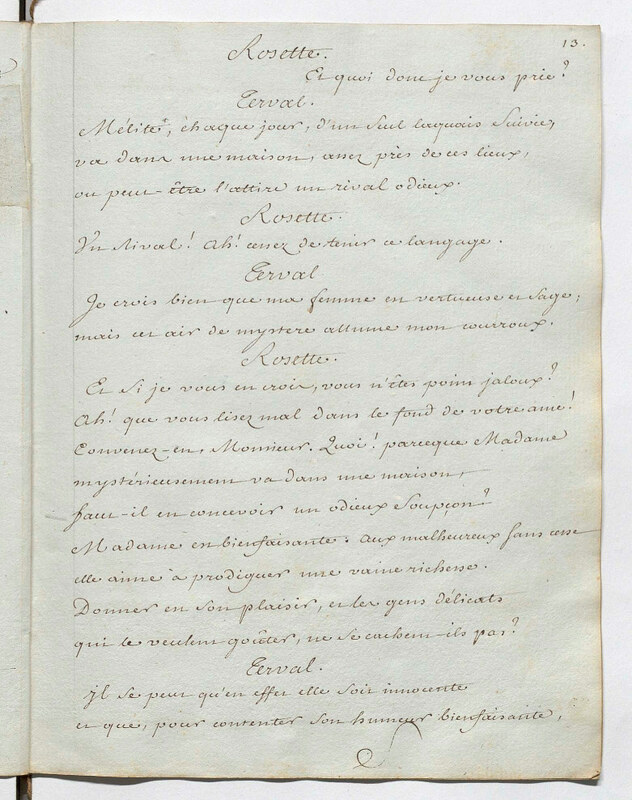 13.
Rosette.
Et quoi donc je vous prie?
Terval.
Mélite, chaque jour, d'un seul laquais suivie,
va dans une maison, assez près de ces lieux,
ou peut-être l'attire un rival odieux.
Rosette.
Un Rival! Ah! cessez de tenir ce langage.
Terval
Je crois bien que ma femme est vertueuse et sage;
mais cet air de mystere allume mon courroux.
Rosette.
Et si je vous en crois, vous n'êtes point jaloux?
Ah! que vous lisez mal dans le fond de votre ame!
Convenez-en, Monsieur. Quoi! parceque Madame
mystérieusement va dans une maison,
faut-il en concevoir un odieux soupçon?
Madame est bienfaisante. Aux malheureux sans cesse
elle aime à prodiguer une vaine richesse.
Donner est son plaisir, et les gens délicats
qui le veulent goûter, ne se cachent-ils pas?
Terval.
Il se peut qu'en effet elle soit innocente
et que, pour contenter son humeur bienfaisante,